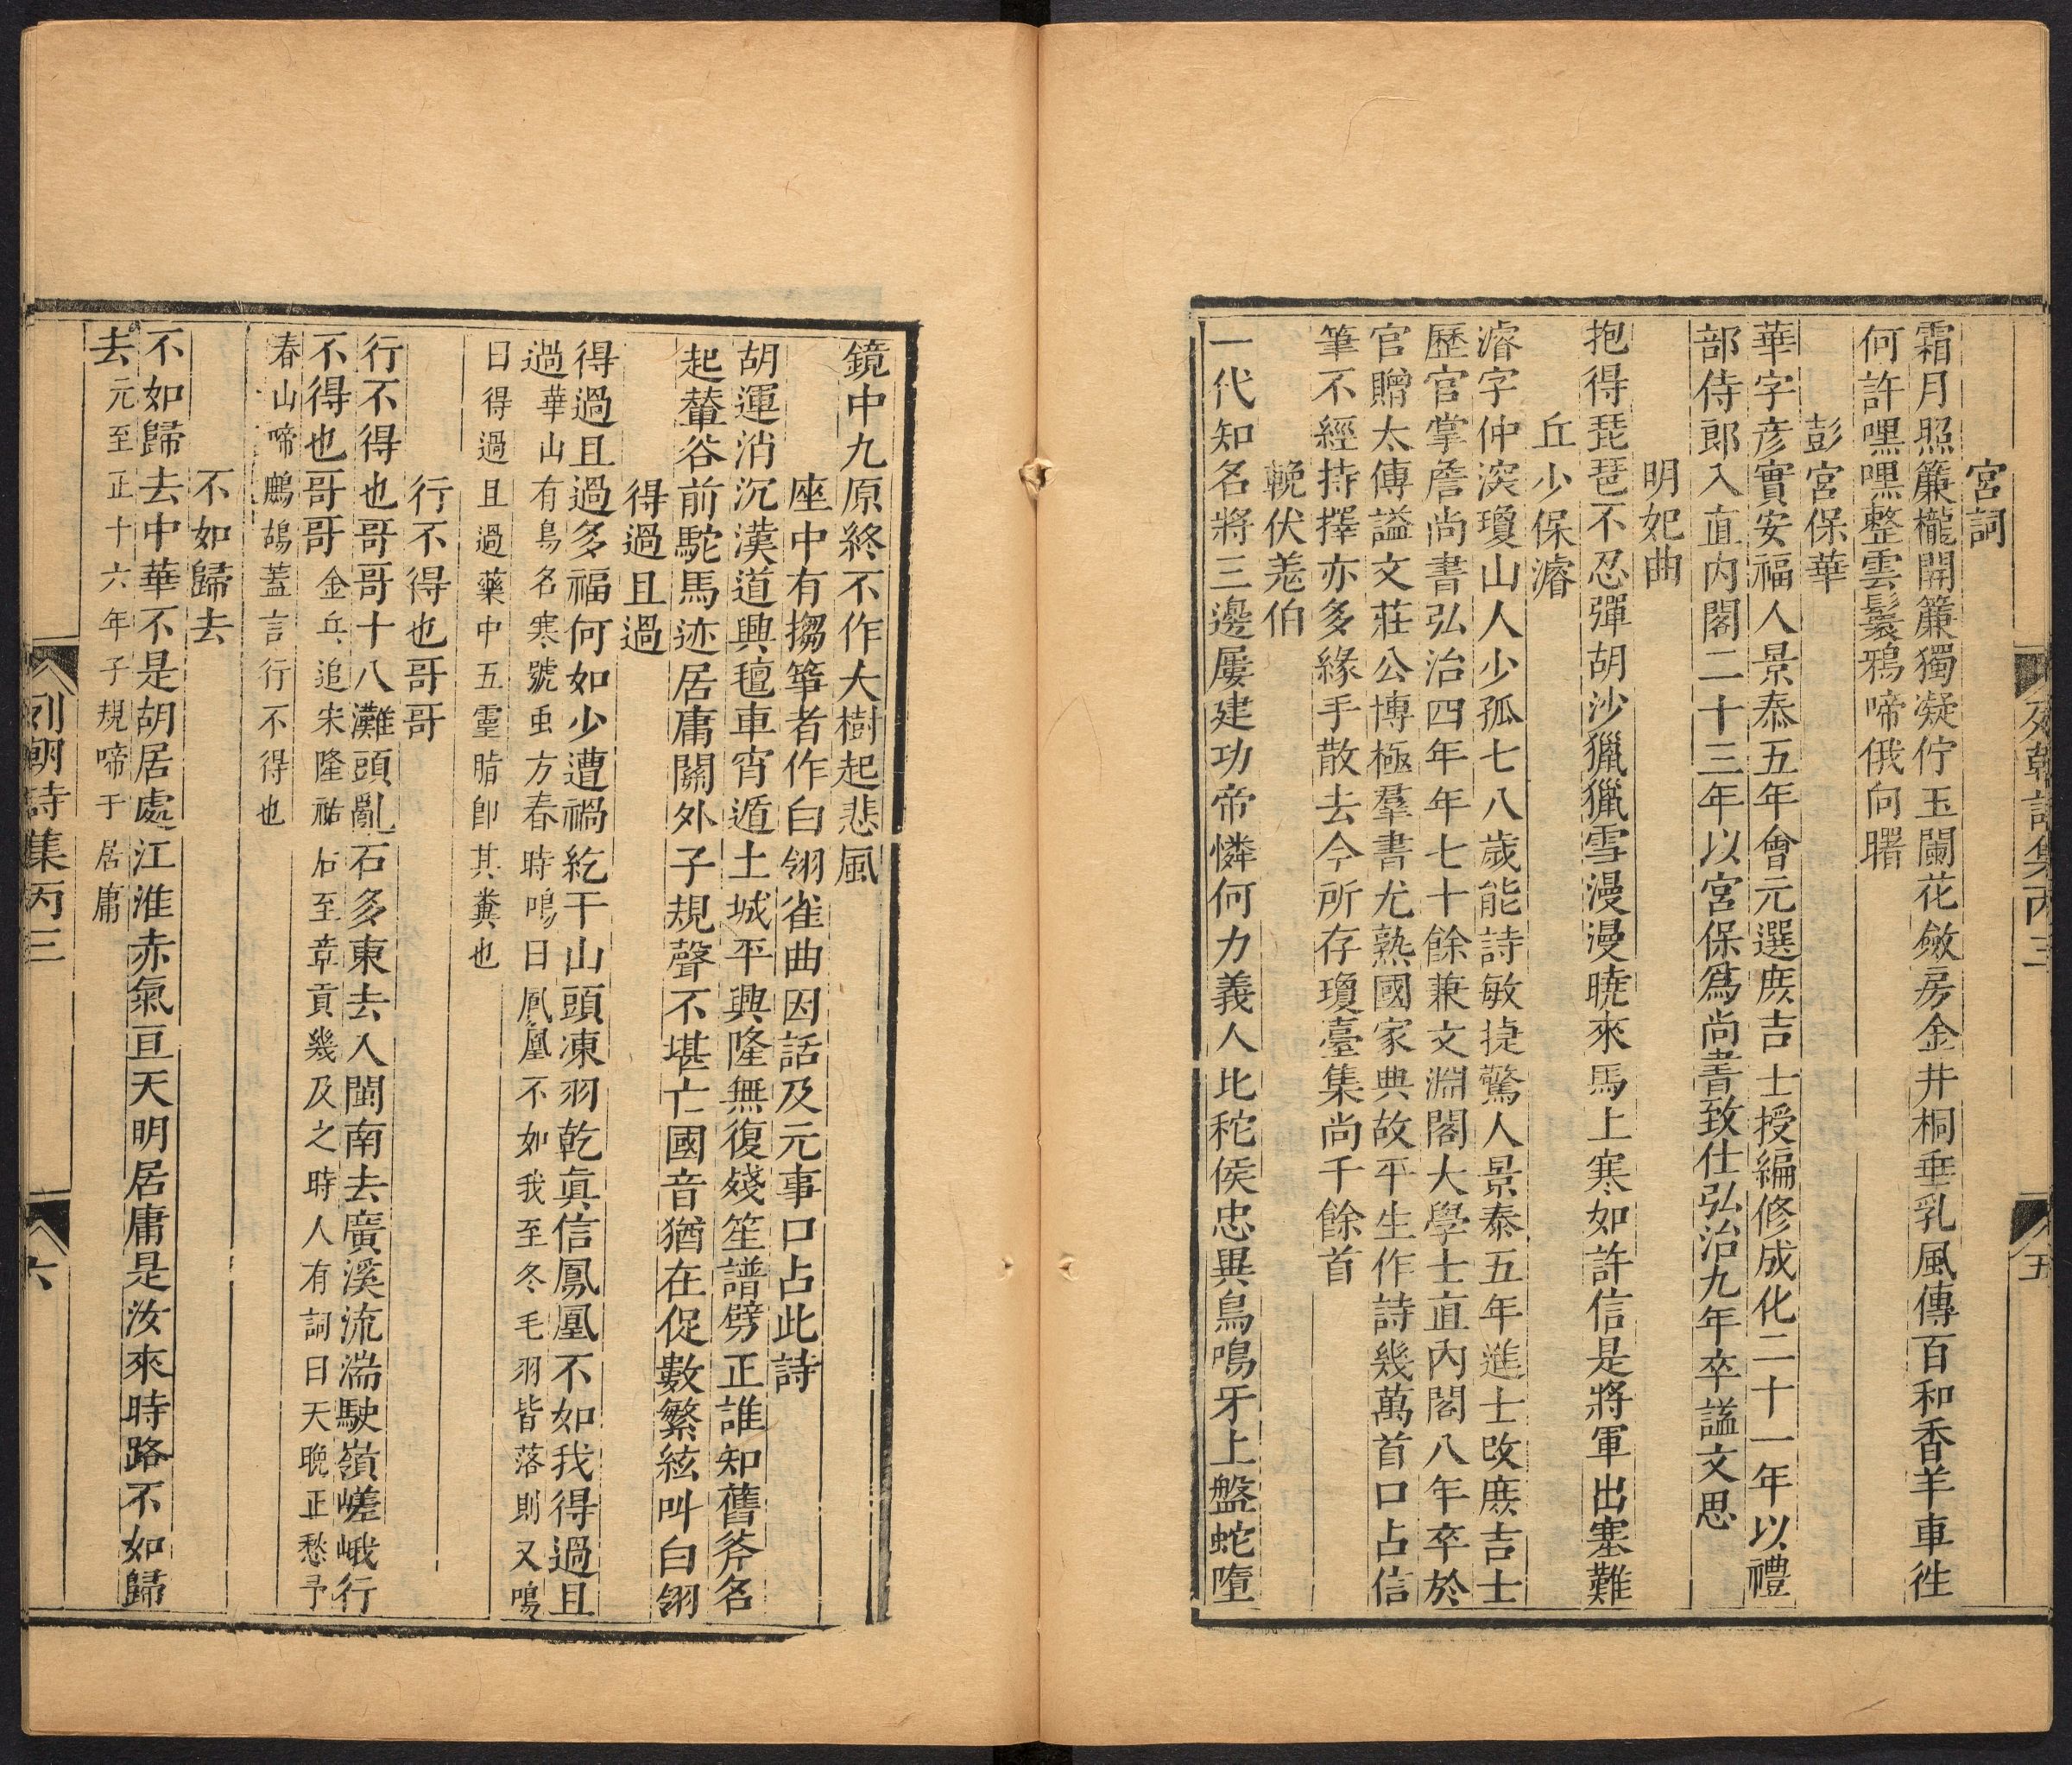 列朝詩集丙三
五
宮詞
霜月照簾櫳開簾獨凝佇玉闌花斂房金井桐垂乳風傳百和香羊車徃
何許嘿嘿整雲鬟鴉啼俄向曙
彭宮保華
華字彦實安福人景泰五年會元選庶吉士授編修成化二十一年以禮
部侍郎入直內閣二十三年以宮保爲尚書致仕弘治九年卒謚文思
明妃曲
抱得琵琶不忍彈胡沙獵獵雪漫漫曉來馬上寒如許信是將軍出塞難
丘少保濬
濬字仲深瓊山人少孤七八歲能詩敏捷驚人景泰五年進士改庶吉士
歷官掌詹尚書弘治四年年七十餘兼文淵閣大學士直內閣八年卒於
官贈太傅謚文莊公博極羣書尤熟國家典故平生作詩幾萬首口占信
筆不經持擇亦多緣手散去今所存瓊臺集尚千餘首
輓伏羗伯
一代知名將三邊屢建功帝憐何力義人比秺侯忠異鳥鳴牙上盤蛇墮
鏡中九原終不作大樹起悲風
座中有搊箏者作白翎雀曲因話及元事口占此詩
胡運消沉漢道興氊車宵遁土城平興隆無復殘笙譜劈正誰知舊斧名
起輦谷前駝馬迹居庸關外子規聲不堪亡國音猶在促數繁絃叫白翎
得過且過
得過且過多福何如少遭禍紇干山頭凍羽乾眞信鳳凰不如我得過且
過華山有鳥名寒號虫方春時鳴曰鳳凰不如我至冬毛羽皆落則又鳴
曰得過且過藥中五靈脂卽其糞也
行不得也哥哥
行不得也哥哥十八灘頭亂石多東去入閩南去廣溪流湍駛嶺嵯峨行
不得也哥哥金兵追宋隆祐后至章貢幾及之時人有詞曰天晚正愁予
春山啼鷓鴣蓋言行不得也
不如歸去
不如歸去中華不是胡居處江淮赤氣亘天明居庸是汝來時路不如歸
去元至正十六年子規啼于居庸
列朝詩集丙三
六